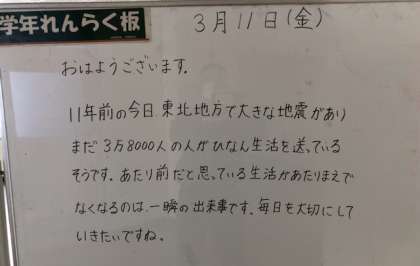 学年れんらく板
3月11日(金)
おはようございます.
11年前の今日.東北地方で大きな地震があり
まだ 3万8000人の人がひなん生活を送っている
そうです.あたり前だと思っている生活があたりまえで
なくなるのは.一瞬の出来事です.毎日を大切にして
いきたいですね.